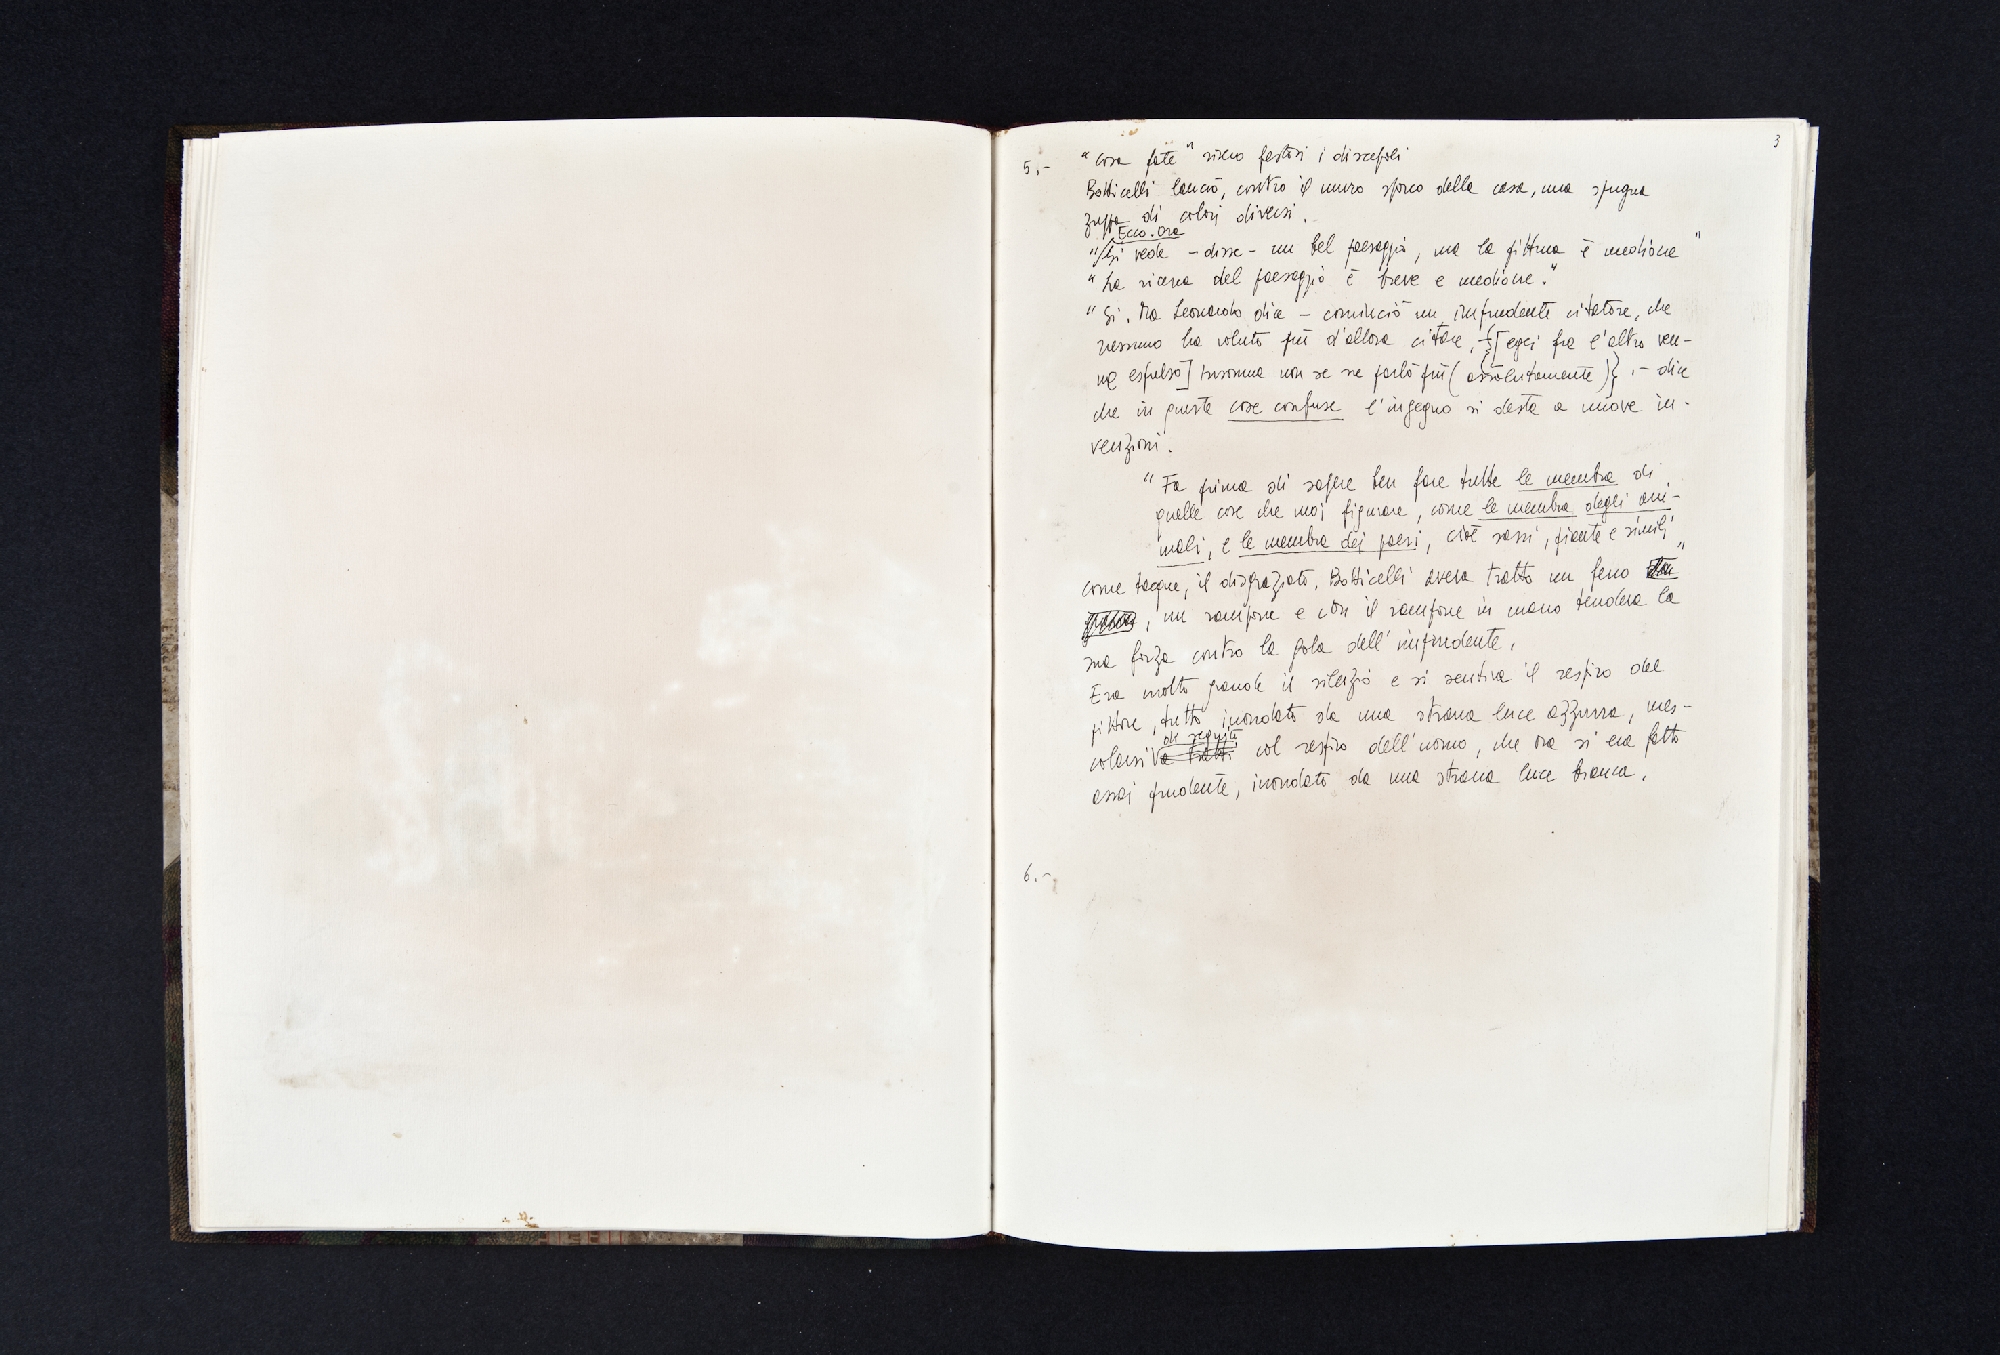 3
5.- "Cosa fate" risero festosi i discepoli
Botticelli lanciò, contro il muro sporco della casa, una spugna
zuppa di colori diversi.
Ecco. Ora
"si vede - disse - un bel paesaggio, ma la pittura è mediocre"
"La ricerca del paesaggio è breve e mediocre."
"Sì. Ma Leonardo dice - cominciò un imprudente citatore, che
nessuno ha voluto più d'allora citare, {[egli fra l'altro ven-
ne espulso] insomma non se ne parlò più (assolutamente)} .- dice
che in queste cose confuse l'ingegno si desta a nuove in-
venzioni.
"Fa prima di sapere ben fare tutte le membra di
quelle cose che vuoi figurare, come le membra degli ani-
mali, e le membra dei paesi, cioè sassi, piante e simili"
come tacque, il disgraziato, Botticelli aveva tratto un ferro
, un rampone e con il rampone in mano tendeva la
sua forza contro la gola dell'imprudente.
Era molto grande il silenzio e si sentiva il respiro del
pittore, tutto inondato da una strana luce azzurra, mes-
di seguito
colarsi a tratti col respiro dell'uomo, che ora si era fatto
assai prudente, inondato da una strana luce bianca.
6.-